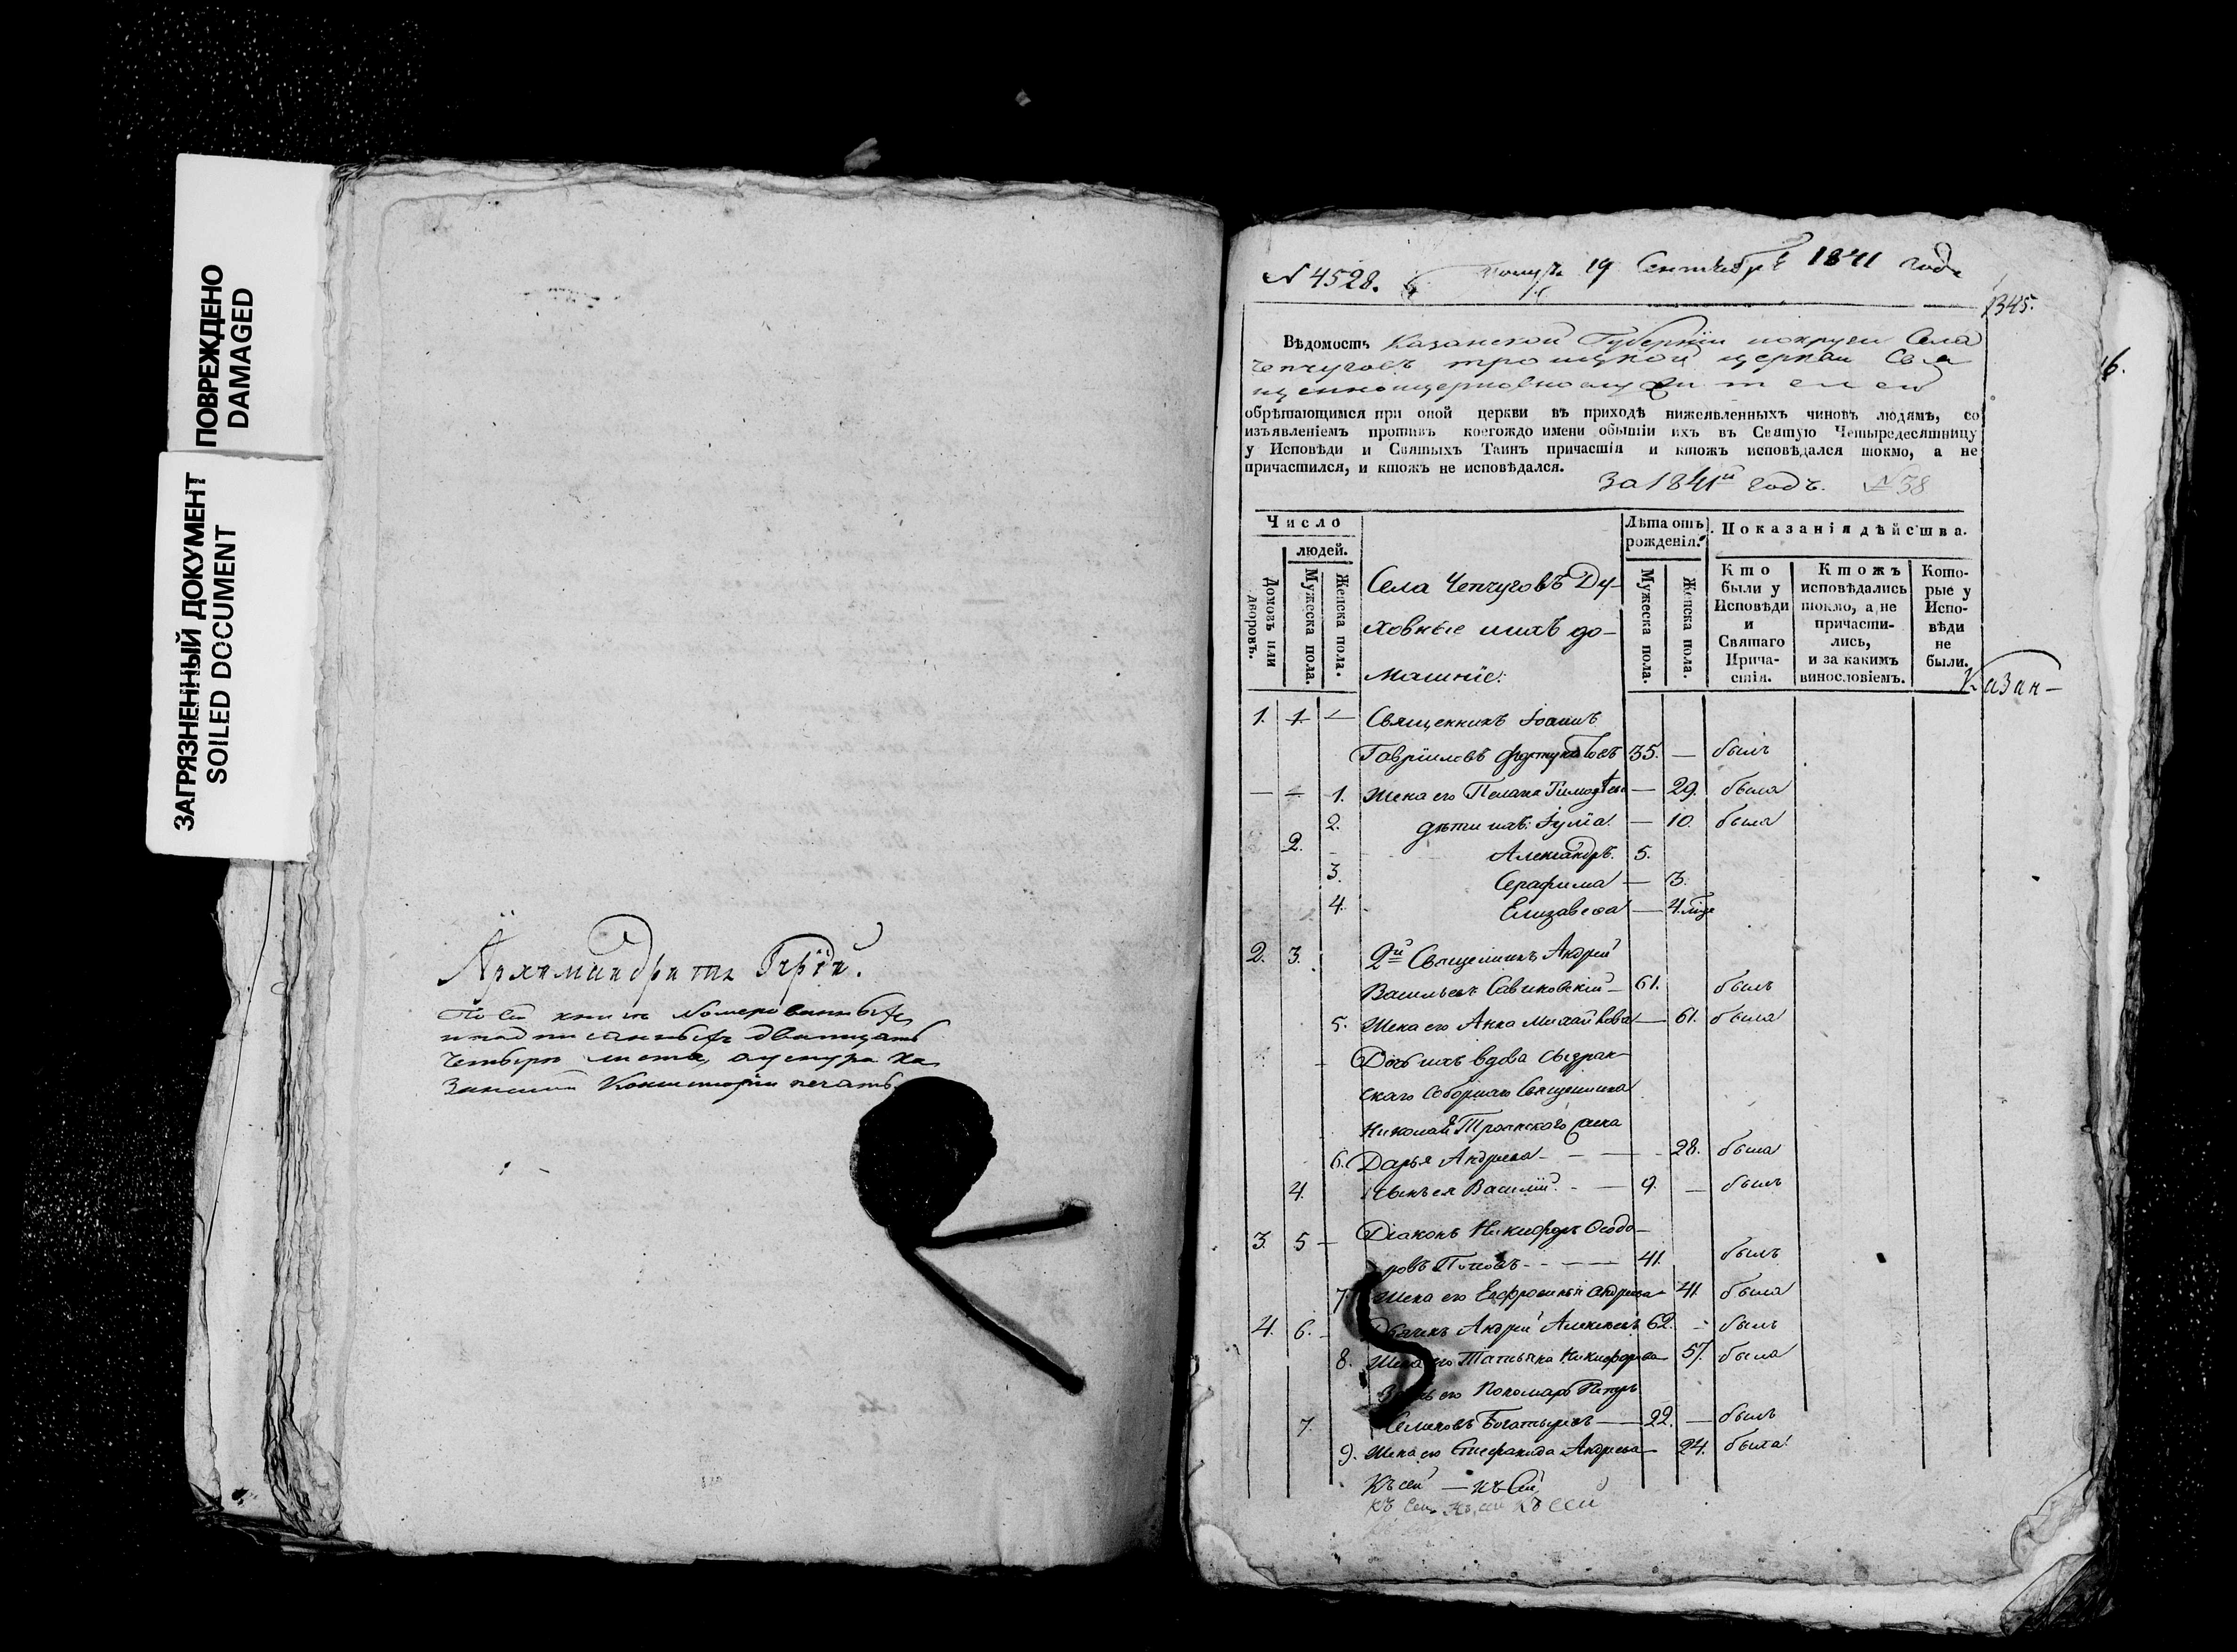 ПОВРЕЖДЕНО
DAMAGED
ЗАГРЯЗНЕННЫЙ ДОКУМЕНТ
SOILED DOCUMENT
Архимандритъ Гурій.
По сей книге номерованныхъ
и надписанныхъ дватцать
четыре листа, а у шнура Ка
занской Консисторіи печать
N 4528. Получ. 19 Сентября 1841 года
1345.
6.
Вѣдомость Казанской Губерніи и округи Села
Чепчуговъ троицкой церкви Свя
щенноцерковнослужителей
обрѣтающимся при оной церкви въ приходѣ нижеявленныхъ чиновъ людямъ, со
изъявленіемъ противъ коегождо имени обытіи ихъ въ Святую Четыредесятницу
у Исповѣди и Святыхъ Таинъ причастія и ктожъ исповѣдался токмо, а не
причастился, и ктожъ не исповѣдался.
За 1841й годъ. №38
Число
людей.
Домовъ или дворовъ.
Мужеска пола.
Женска пола.
Села Чепчуговъ Ду-
ховные и ихъ до-
машніе:
Лѣта отъ рожденія.
Мужеска пола.
Женска пола.
Показанія дѣйства.
Кто были у Исповѣди и Святаго Прича-стія.
Ктожъ исповѣдались токмо, а не причасти-лись, и за какимъ винословіемъ.
Кото-рые у Испо-вѣди не были.
Казан-
1. 1. — Священникъ Іоаннъ
Гавріиловъ 35. — былъ
— — 1. Жена его Пелагея Тимофѣева — 29. была
2. дѣти ихъ: Іулія. — 10. была
2. Александръ. 5.
3. Серафима — 3.
4. Елизавета — 4.
2. 3. 2й Священникъ Андрей
Васильевъ Савиновскій — 61. былъ
5. Жена его Анна Михайлова — 61. была
Дочь ихъ вдова Сызран-
скаго Соборнаго Священника
Николая Троянскаго жена
6. Дарья Андреева — 28. была
4. Сынъ ея Василій. — 9. — былъ
3. 5 — Діаконъ Никифоръ Ѳеодо-
ровъ Поповъ — 41. былъ
7. Жена его Евфросинья Андреева 41. была
4. 6. Дьячекъ Андрей Алексѣевъ 62. — былъ
8. Жена его Татьяна Никифорова 57. была
Зять его Пономарь Петръ
7. Семеновъ Богатыревъ — 22. — былъ
9. Жена его Степанида Андреева 24. была
Къ сей — къ сей
къ сей къ сей къ сей